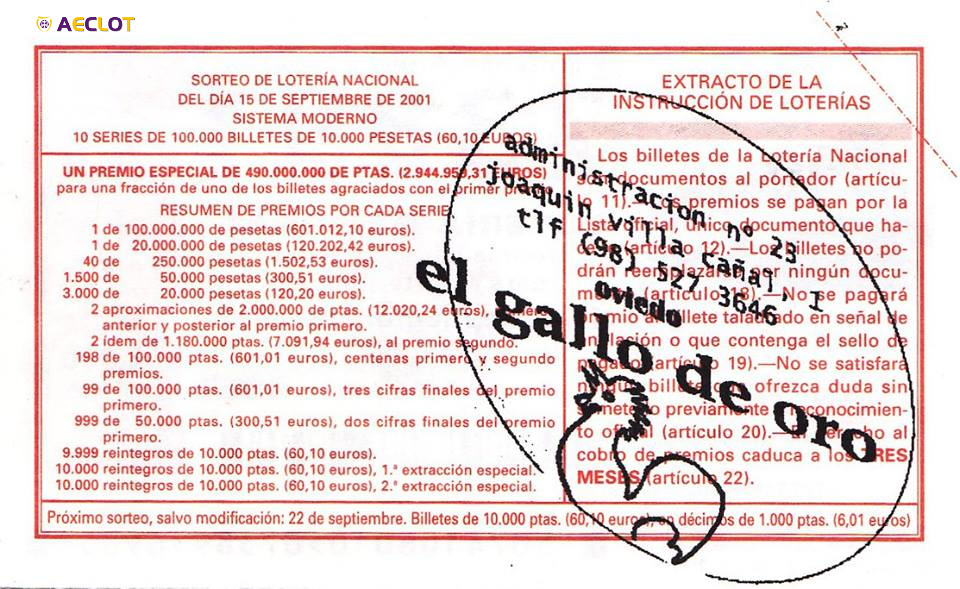 AECLOT
SORTEO DE LOTERÍA NACIONAL
DEL DÍA 15 DE SEPTIEMBRE DE 2001
SISTEMA MODERNO
10 SERIES DE 100.000 BILLETES DE 10.000 PESETAS (60,10 EUROS)
UN PREMIO ESPECIAL DE 490.000.000 DE PTAS. (2.944.959,31 EUROS)
para una fracción de uno de los billetes agraciados con el primer premio
RESUMEN DE PREMIOS POR CADA SERIE
1 de 100.000.000 de pesetas (601.012,10 euros).
1 de 20.000.000 de pesetas (120.202,42 euros).
40 de 250.000 pesetas (1.502,53 euros).
1.500 de 50.000 pesetas (300,51 euros).
3.000 de 20.000 pesetas (120,20 euros).
2 aproximaciones de 2.000.000 de ptas. (12.020,24 euros), números
anterior y posterior al premio primero.
2 ídem de 1.180.000 ptas. (7.091,94 euros), al premio segundo.
198 de 100.000 ptas. (601,01 euros), centenas primero y segundo
premios.
99 de 100.000 ptas. (601,01 euros), tres cifras finales del premio
primero.
999 de 50.000 ptas. (300,51 euros), dos cifras finales del premio
primero.
9.999 reintegros de 10.000 ptas. (60,10 euros).
10.000 reintegros de 10.000 ptas. (60,10 euros), 1.ª extracción especial.
10.000 reintegros de 10.000 ptas. (60,10 euros), 2.ª extracción especial.
EXTRACTO DE LA
INSTRUCCIÓN DE LOTERÍAS
Los billetes de la Lotería Nacional
son documentos al portador (artícu-
lo 11).—Los premios se pagan por la
Lista oficial, único documento que ha-
ce fe (artículo 12).—Los billetes no po-
drán reemplazarse por ningún docu-
mento (artículo 18).—No se pagará
premio al billete taladrado en señal de
anulación o que contenga el sello de
pagado (artículo 19).—No se satisfará
ningún billete que ofrezca duda sin
someterlo previamente a reconocimien-
to oficial (artículo 20).—El derecho al
cobro de premios caduca a los TRES
MESES (artículo 22).
Próximo sorteo, salvo modificación: 22 de septiembre. Billetes de 10.000 ptas. (60,10 euros) en décimos de 1.000 ptas. (6,01 euros)
administracion nº 23
joaquin villa cañal, 1
tlf (98) 527 3646
oviedo
el gallo de oro